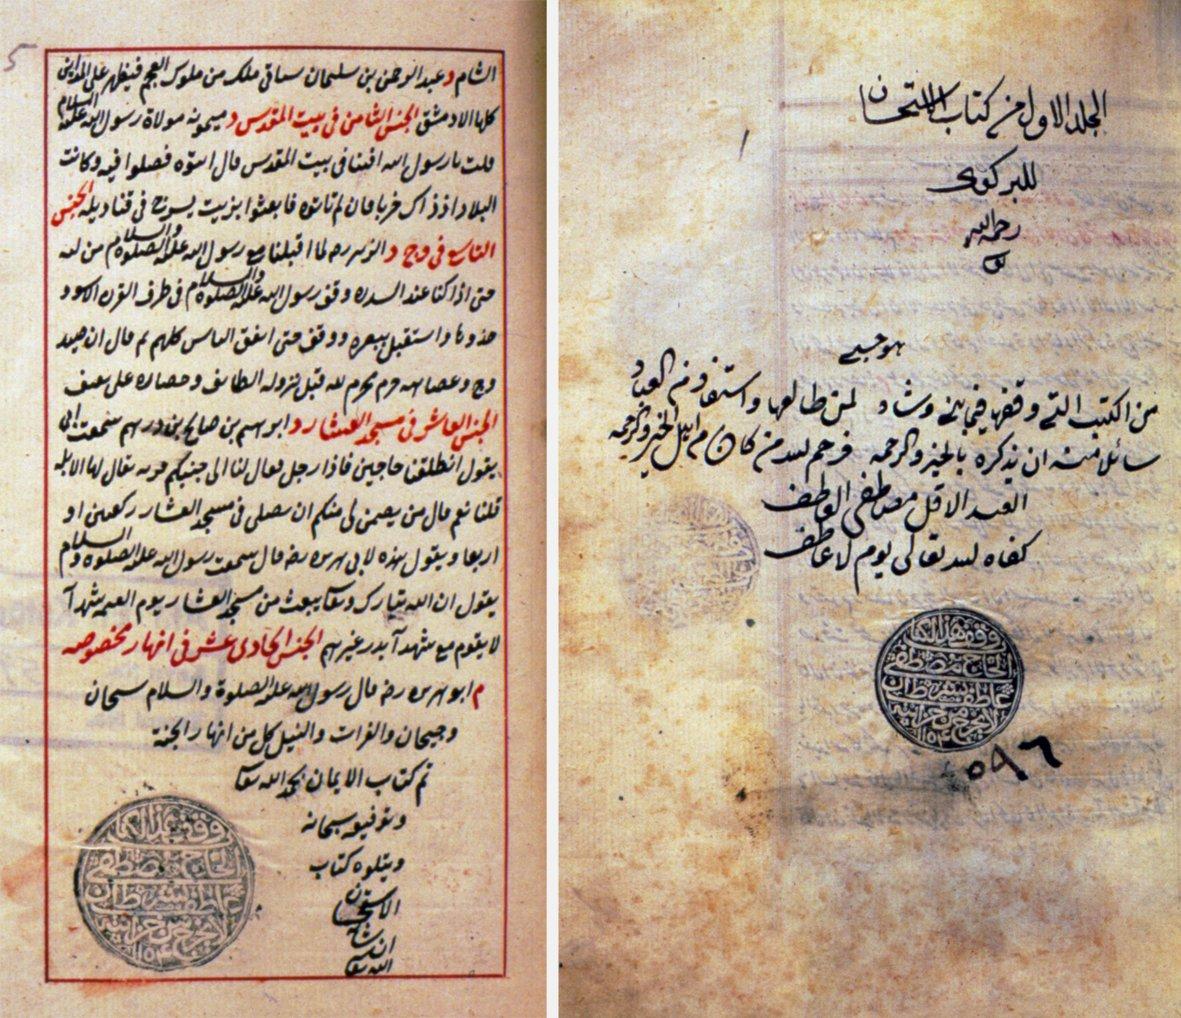 الشام د عبد الرحمن بن سليمان سياتى ملك من ملوك العجم فيظهر على المداين
كلها الا دمشق الجنس الثامن فى بيت المقدس د ميمونه مولاة رسول الله عليه السلام
قلت يا رسول الله افتنا فى بيت المقدس قال ائتوه فصلوا فيه وكانت
البلاد اذ ذاك خربا فان لم تاتوه فابعثوا بزيت يسرج فى قناديله الجنس
التاسع فى وج د الزبير رضه لما اقبلنا مع رسول الله عليه الصلوة والسلام من ليه
حتى اذا كنا عند السدره وقف رسول الله عليه الصلوة والسلام فى طرف القرن الاسود
حذوها واستقبل ببصره ووقف حتى اتفق الناس كلهم ثم قال ان صيد
وج وعضاهه حرم محرم لله قبل نزوله الطائف وحصاره على ثقيف
الجنس العاشر فى مسجد العشار د ابرهيم بن صالح بن درهم سمعت ابى
يقول انطلقنا حاجين فاذا رجل فقال لنا الى جنبكم قريه يقال لها الابله
قلنا نعم قال من يضمن لى منكم ان يصلى فى مسجد العشار ركعتين او
اربعا ويقول هذه لابى هريره رضه قال سمعت رسول الله عليه الصلوة والسلام
يقول ان الله تبارك وتعا يبعث من مسجد العشار يوم القيمه شهدآ
لا يقوم مع شهدآ بدر غيرهم الجنس الحادى عشر فى انهار مخصوصه
م ابو هريره رضه قال رسول الله عليه الصلوة والسلام سيحان
وجيحان والفرات والنيل كل من انهار الجنة
تم كتاب الايمان بحمد الله تعا
وتوفيقه سبحانه
ويتلوه كتاب
ان شا
الله تعا
وقف هذا الكتاب
الحاج مصطفى
عاطف بشرط ان
لا يخرج من خزانته
١١٥٤
المجلد الاول من كتاب
للبركوى
رحمه الله
هو حسبى
من الكتب التى وقفها فيما بنى وشاد لمن طالعها واستفاد من العباد
سائلا منه ان يذكره بالخير والرحمه فرحم الله من كان من اهل الخير والرحمه
العبد الاقل مصطفى العاطف
كفاه الله تعالى يوم لا عاطف
وقف هذا الكتاب
الحاج مصطفى
عاطف بشرط ان
لا يخرج من خزانته
١١٥٤
٥٩٦